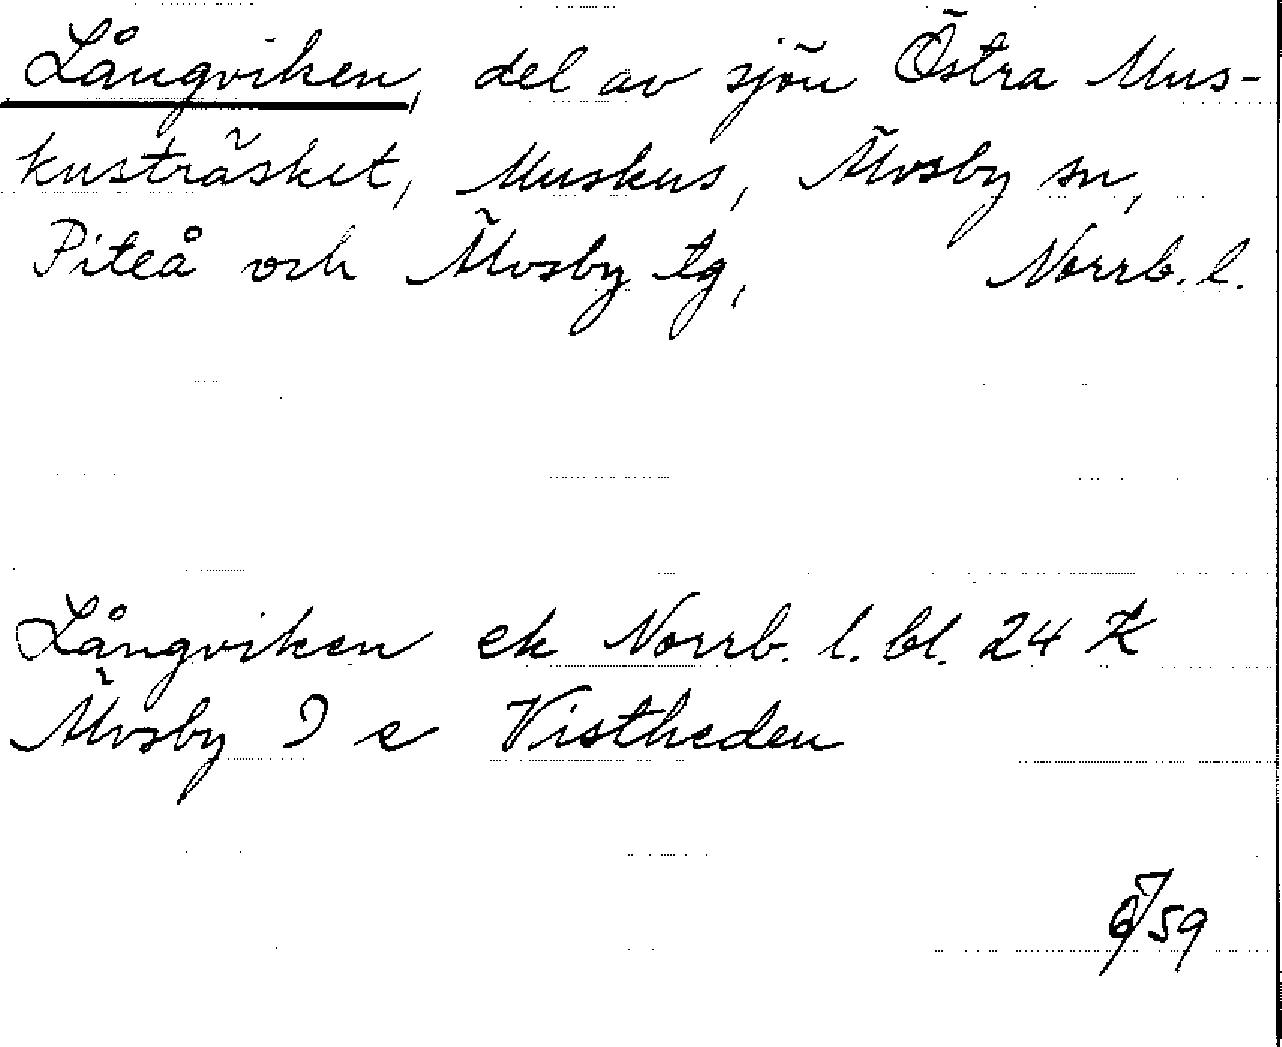 Långviken, del av sjön Östra Mus-
kusträsket, Muskus, Älvsby sn,
Piteå och Älvsby tg, Norrb. l.
Långviken ek Norrb. l. bl. 24 K
Älvsby 9 e Vistheden
/59